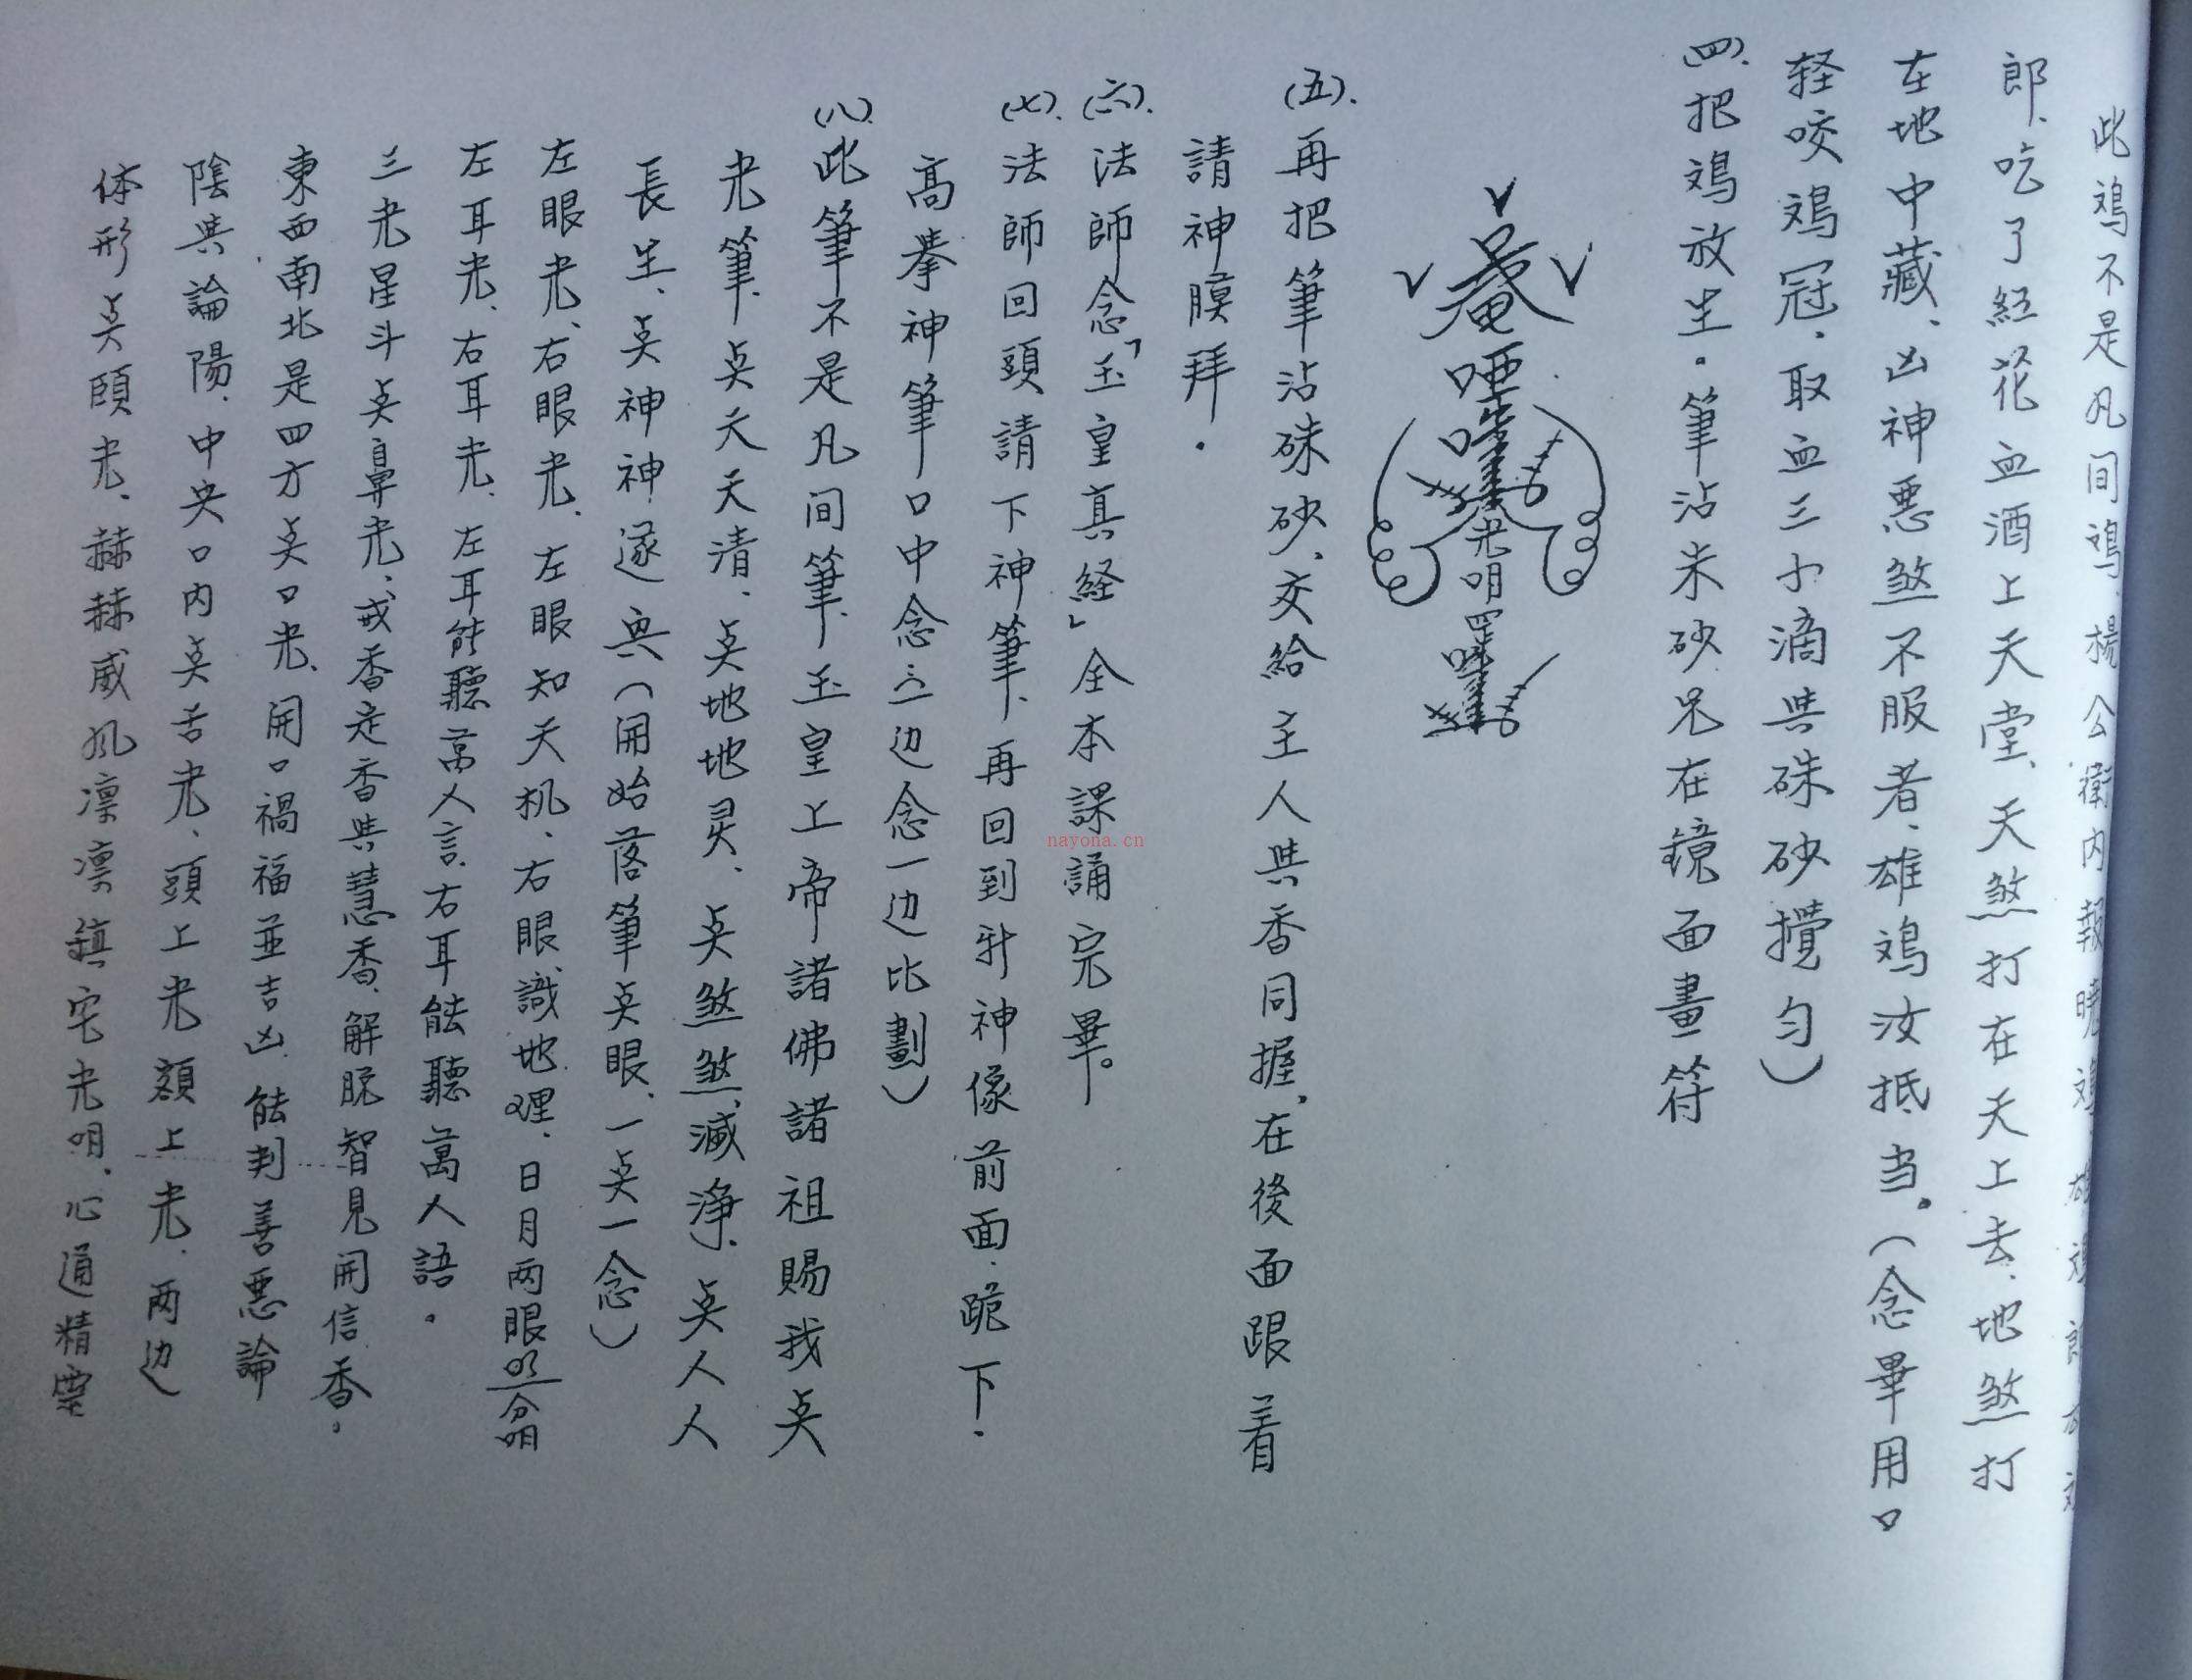 此鳮不是凡间鳮、楊公衛内報曉鳮、雄鳮郎
郎、吃了紅花血酒上天堂、天煞打在天上去、地煞打
在地中藏、凶神悪煞不服者、雄鳮汝抵当。（念畢用口
轻咬鳮冠、取血三小滴共硃砂攪匀）
四、把鳮放生。筆沾朱砂兄在鏡面畫符
光明
(五).再把筆沾硃砂、交給主人共香同握、在後面跟着
請神膜拜.
(六).法師念「玉皇真経」全本課誦完畢。
(七).法師回頭請下神筆、再回到神像前面、跪下.
高拳神筆口中念（边念一边比劃）
(八).此筆不是凡间筆、玉皇上帝諸佛諸祖賜我奌
光筆、奌天天清、奌地地灵、奌煞煞滅浄、奌人人
長生、奌神神遂興（開始落筆奌眼、一奌一念）
左眼光、右眼光、左眼知天机、右眼識地理、日月两眼明分明
左耳光、右耳光、左耳能聽萬人言、右耳能聽萬人語.
三光星斗奌鼻光、戒香定香共慧香、解脱智見開信香.
東西南北是四方奌口光、開口禍福並吉凶、能判善悪論
陰共論陽、中央口内奌舌光、頭上光額上光、两边
体形奌頤光、赫赫威风凛凛鎮宅光明、心通精靈
nayona.cn